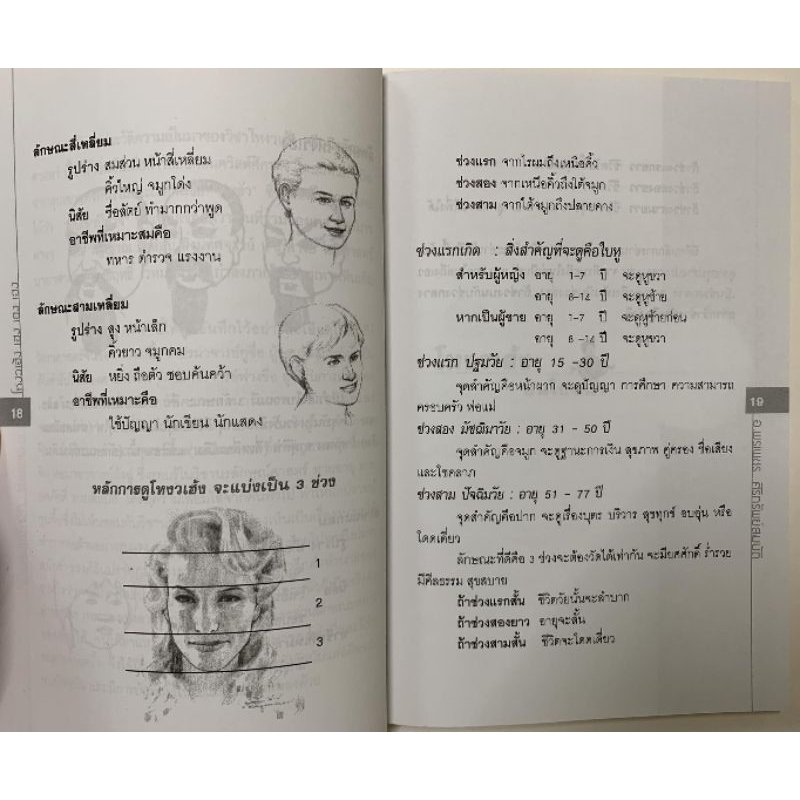 ลักษณะสี่เหลี่ยม
รูปร่าง สมส่วน หน้าสี่เหลี่ยม
คิ้วใหญ่ จมูกโด่ง
นิสัย ซื่อสัตย์ ทำมากกว่าพูด
อาชีพที่เหมาะสมคือ
ทหาร ตำรวจ แรงงาน
ลักษณะสามเหลี่ยม
รูปร่าง สูง หน้าเล็ก
คิ้วยาว จมูกคม
นิสัย หยิ่ง ถือตัว ชอบค้นคว้า
อาชีพที่เหมาะคือ
ใช้ปัญญา นักเขียน นักแสดง
18
หลักการดูโหงวเฮ้ง จะแบ่งเป็น 3 ช่วง
1
2
3
ช่วงแรก จากไรผมถึงเหนือคิ้ว
ช่วงสอง จากเหนือคิ้วถึงใต้จมูก
ช่วงสาม จากใต้จมูกถึงปลายคาง
ช่วงแรกเกิด : สิ่งสำคัญที่จะดูคือใบหู
สำหรับผู้หญิง อายุ 1-7 ปี จะดูหูขวา
อายุ 8-14 ปี จะดูหูซ้าย
หากเป็นผู้ชาย อายุ 1-7 ปี จะดูหูซ้ายก่อน
อายุ 8-14 ปี จะดูหูขวา
ช่วงแรก ปฐมวัย : อายุ 15 -30 ปี
จุดสำคัญคือหน้าผาก จะดูปัญญา การศึกษา ความสามารถ
ครอบครัว พ่อแม่
ช่วงสอง มัชฌิมาวัย : อายุ 31 - 50 ปี
จุดสำคัญคือจมูก จะดูฐานะการเงิน สุขภาพ คู่ครอง ชื่อเสียง
และโชคลาภ
ช่วงสาม ปัจฉิมวัย : อายุ 51 - 77 ปี
จุดสำคัญคือปาก จะดูเรื่องบุตร บริวาร สุขทุกข์ อบอุ่น หรือ
โดดเดี่ยว
ลักษณะที่ดีคือ 3 ช่วงจะต้องวัดได้เท่ากัน จะมียศศักดิ์ ร่ำรวย
มีศีลธรรม สุขสบาย
ถ้าช่วงแรกสั้น ชีวิตวัยนั้นจะลำบาก
ถ้าช่วงสองยาว อายุจะสั้น
ถ้าช่วงสามสั้น ชีวิตจะโดดเดี่ยว
19